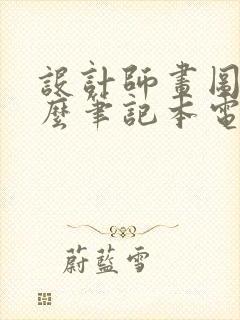 設計師畫圖
麼筆記本電
蔚藍雪